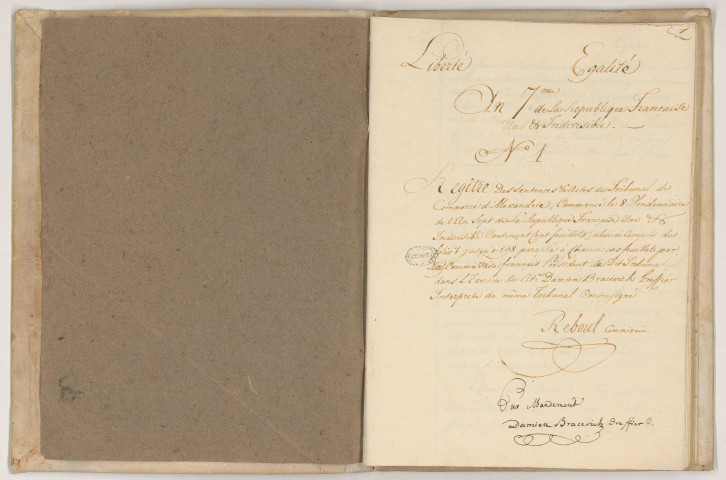 1
Liberté Egalité
An 7.me
de La République Française
Une & Indivisible.
No 1
Regître Des Sentences & Actes du Tribunal de
Commerce d'Alexandrie, Commencé le 8 Vendemiaire
de L'An Sept de La Republique Française Une &
Indivisible Contenant Cent feuillets, celui-ci Compris des
folio 1 jusqu'a 198 paraphé a Chacun des feuillets par
Nous Commissaire français Président du Dit Tribunal
dans L'Enceinte du Cit. Damien Bracevich Greffier
Interprete du même Tribunal Contresigné
Reboul Commissaire
Par Mandement
Damien Bracevich Greffier